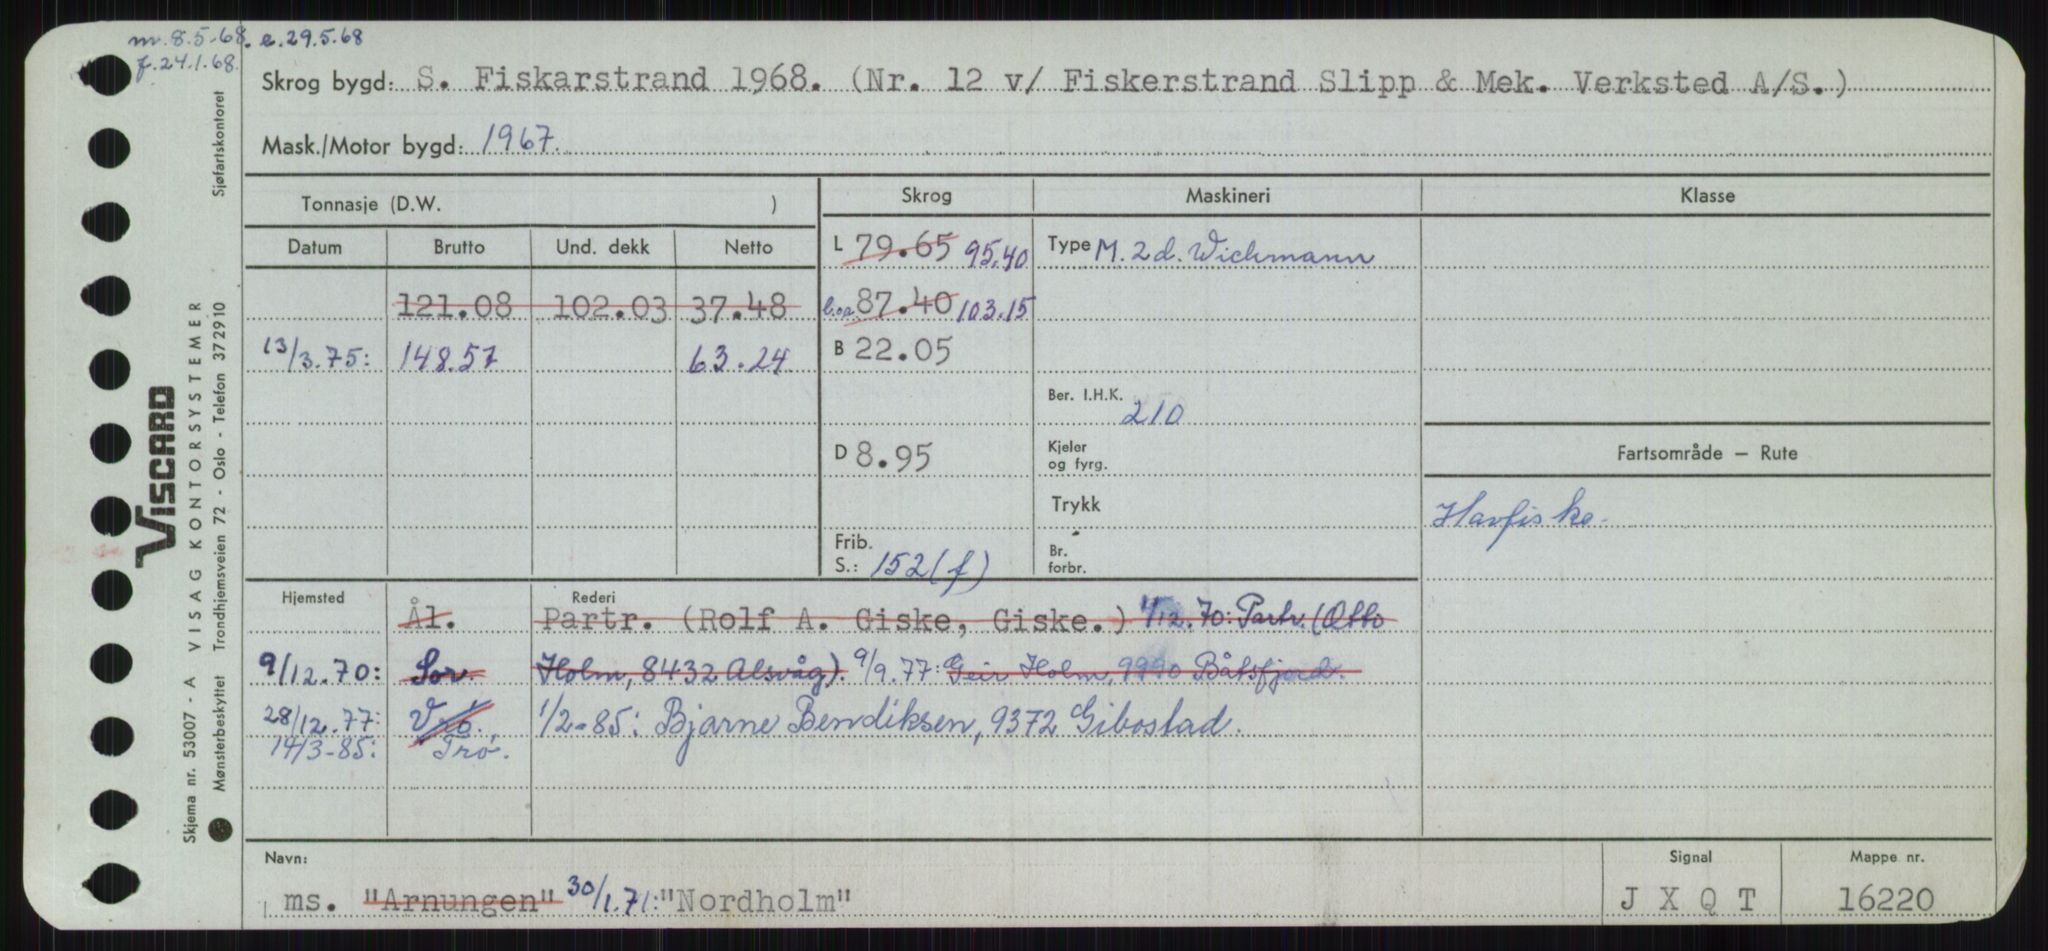 m. 8.5-68. e. 29.5.68
f. 24.1.68.
Skrog bygd: S. Fiskarstrand 1968. (Nr. 12 v/ Fiskerstrand Slipp & Mek. Verksted A/S.)
Mask./Motor bygd: 1967.
Tonnasje (D.W. ) Skrog Maskineri Klasse
Datum Brutto Und. dekk Netto L 79.65 95.40 Type M. 2 d. Wichmann
121.08 102.03 37.48 l.o.a. 87.40 103.15
13/3.75: 148.57 63.24 B 22.05
Ber. I.H.K. 210
D 8.95 Kjeler og fyrg. Fartsområde — Rute
Trykk Havfiske.
Frib. S.: 152 (f) Br. forbr.
Hjemsted Rederi
Ål. Partr. (Rolf A. Giske, Giske.) 1/12.70: Partr. (Otto
9/12.70: Sor. Holm, 8432 Alsvåg). 9/9.77: Geir Holm, 9990 Båtsfjord.
28/12.77: Vdø. 1/2-85: Bjarne Bendiksen, 9372 Gibostad.
14/3-85: Trø.
Navn: Signal Mappe nr.
ms. "Arnungen" 30/1.71: "Nordholm" J X Q T 16220
Viscard
VISAG KONTORSYSTEMER Sjøfartskontoret
Skjema nr. 53007 - A
Mønsterbeskyttet Trondhjemsveien 72 - Oslo - Telefon 372910